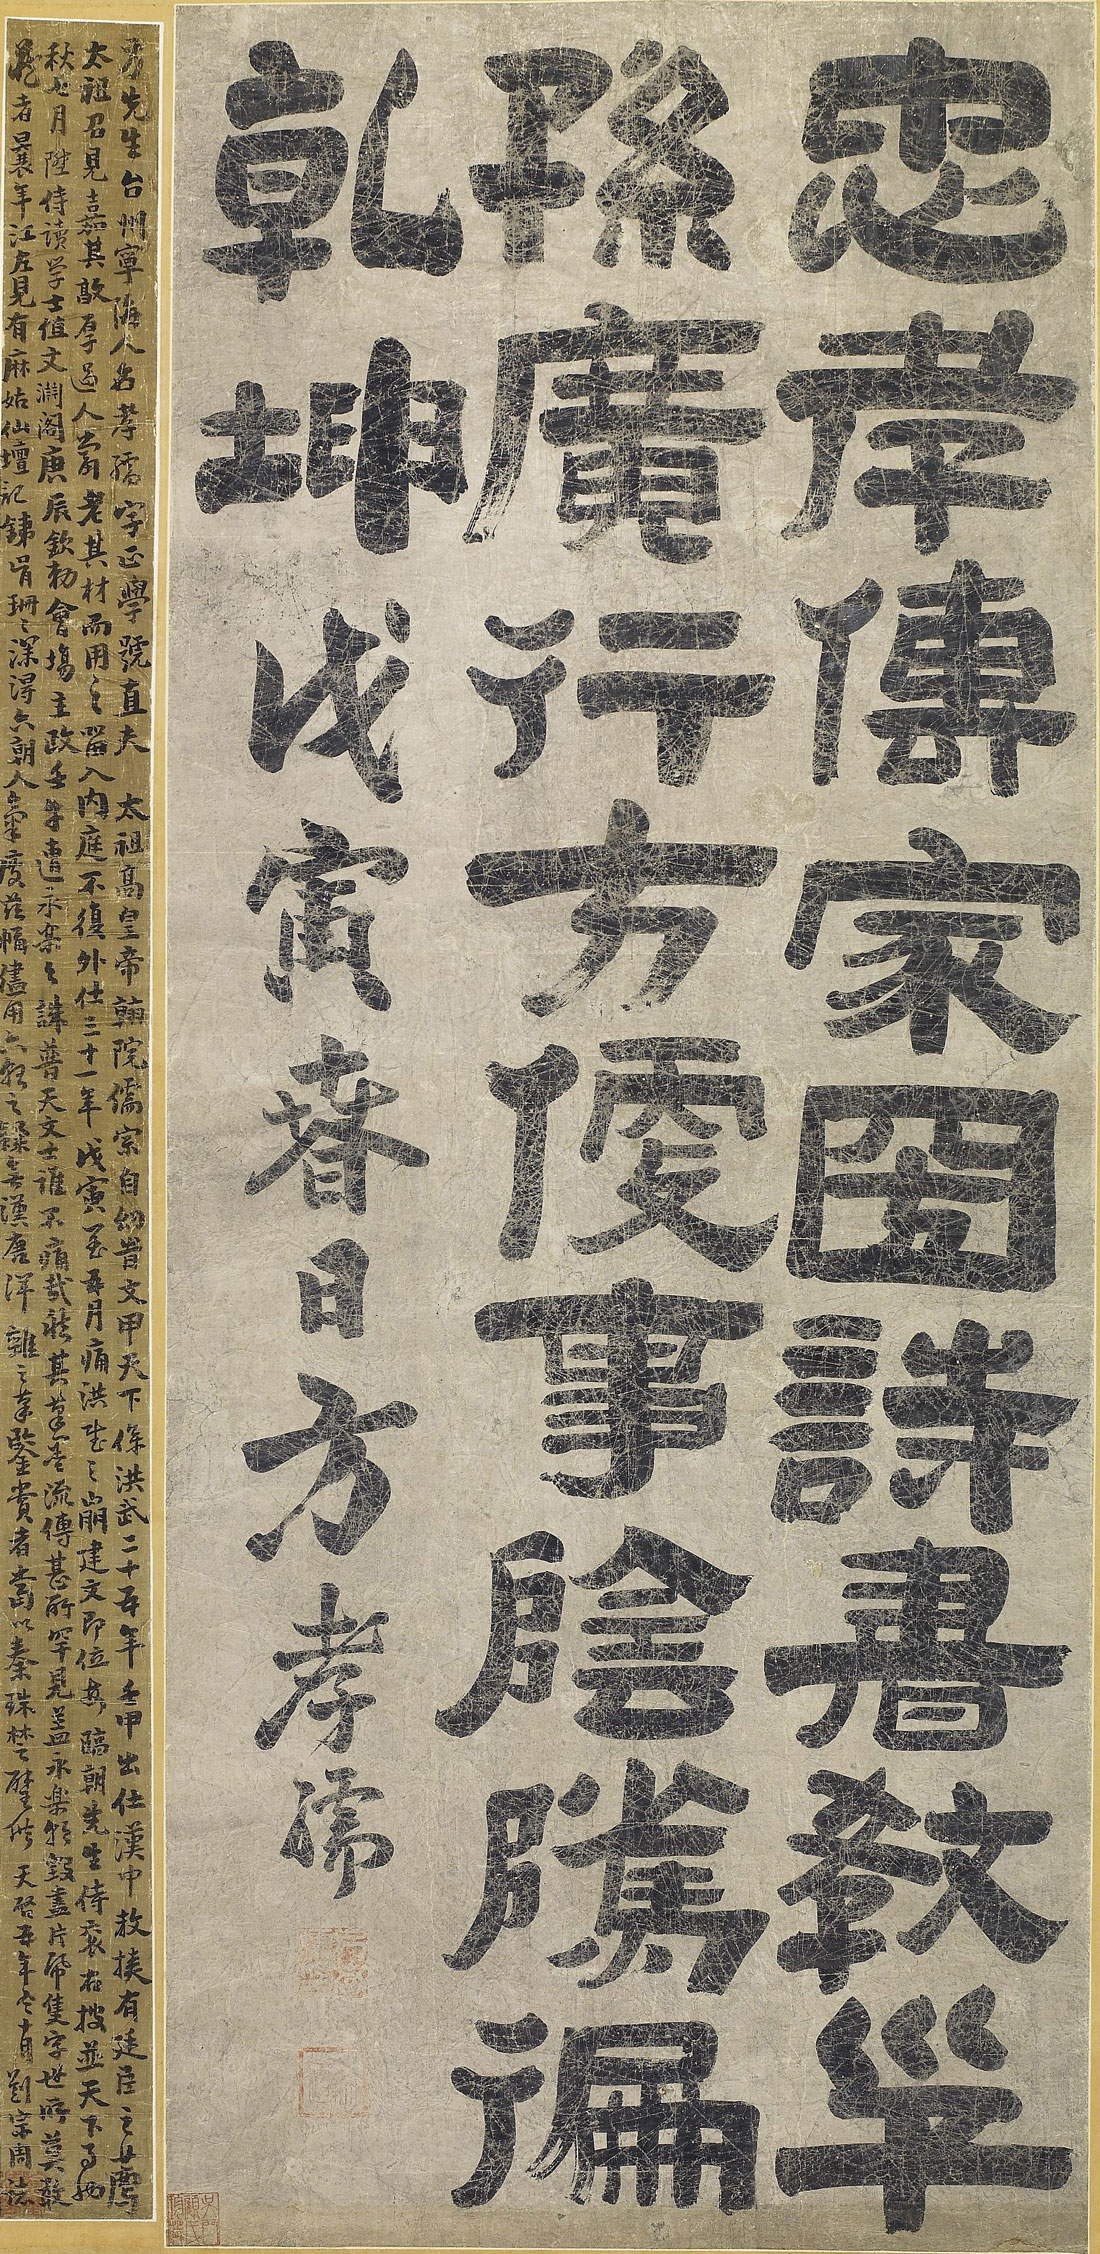 忠孝傳家國詩書教子
孫廣行方便事陰騭徧
乾坤
戊寅春日方孝孺
方先生台州寧海人名孝孺字正學號直夫 太祖高皇帝翰院儒宗自幼岩文甲天下保洪武二十五年壬申出仕漢中教授有廷臣之薦
太祖召見嘉其敦厚過人翁老其材而用之留入內庭不復外仕三十一年戊寅至五月痛洪武之崩建文即位其臨朝先生侍衣在授並天下了
秋七月陞侍讀學士值文淵閣庚辰欽勅會場主政壬午遭永樂之誅普天文士誰不痛哉然其墨卷流傳甚所罕見蓋永樂朝毀盡片帋隻字世所莫敢
藏者曩年江左見有麻姑仙壇記鍊骨珊之深得六朝人氣度茲幅儘用六朝之隸無漢唐洋雜之筆鑒賞者當以秦珠林之璧 天啓五年 月劉宗周誌